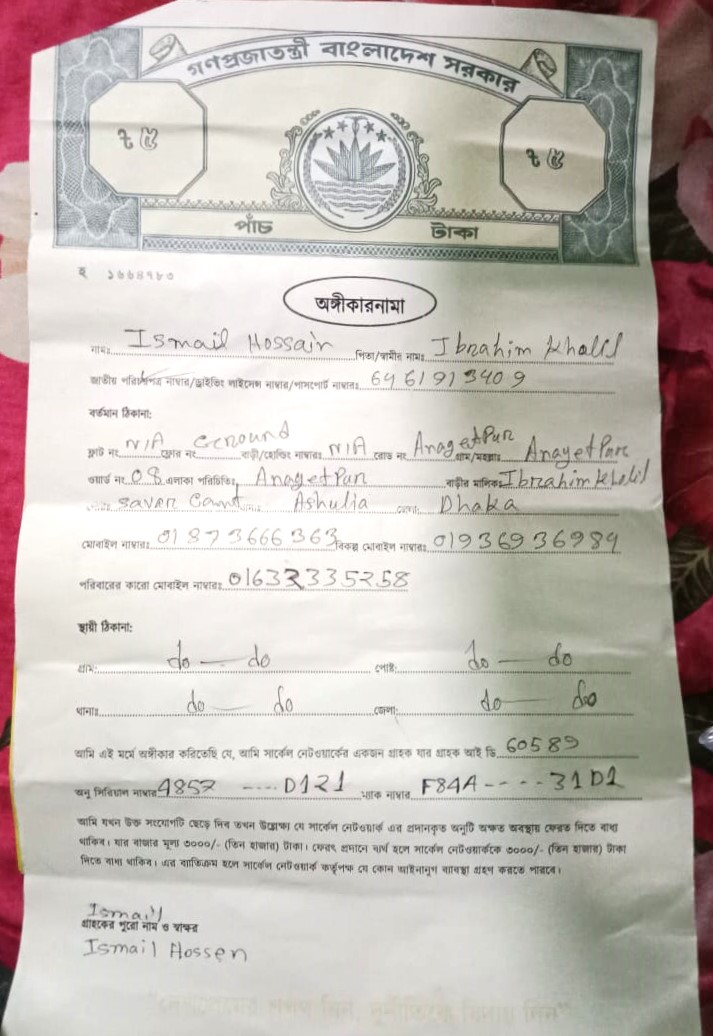 গণপ্রজাতন্ত্রী বাংলাদেশ সরকার
৳ ৫ ৳ ৫
পাঁচ টাকা
হ ১৬৬৪৭৮৩
অঙ্গীকারনামা
নামঃ Ismail Hossain পিতা/স্বামীর নামঃ Ibrahim Khalil
জাতীয় পরিচয়পত্র নাম্বার/ড্রাইভিং লাইসেন্স নাম্বার/পাসপোর্ট নাম্বারঃ 6461913409
বর্তমান ঠিকানা:
ফ্লাট নং N/A ফ্লোর নং Ground বাড়ী/হোল্ডিং নাম্বারঃ N/A রোড নং Anayet Pur গ্রাম/মহল্লাঃ Anayet Pur
ওয়ার্ড নং 08 এলাকা পরিচিতিঃ Anayet Pur বাড়ীর মালিকঃ Ibrahim Khalil
Savar Cant Ashulia Dhaka
মোবাইল নাম্বারঃ 01873666363 বিকল্প মোবাইল নাম্বারঃ 01936936984
পরিবারের কারো মোবাইল নাম্বারঃ 01632335258
স্থায়ী ঠিকানা:
গ্রাম: do — do পোষ্ট: do — do
থানাঃ do — do জেলা: do — do
আমি এই মর্মে অঙ্গীকার করিতেছি যে, আমি সার্কেল নেটওয়ার্কের একজন গ্রাহক যার গ্রাহক আই ডি 60589
অনু সিরিয়াল নাম্বার 4857 ---- D121 ম্যাক নাম্বার F84A ----- 31D1
আমি যখন উক্ত সংযোগটি ছেড়ে দিব তখন উল্লেক্ষ্য যে সার্কেল নেটওয়ার্ক এর প্রদানকৃত অনুটি অক্ষত অবস্থায় ফেরত দিতে বাধ্য
থাকিব। যার বাজার মূল্য ৩০০০/- (তিন হাজার) টাকা। ফেরৎ প্রদানে ব্যর্থ হলে সার্কেল নেটওয়ার্ককে ৩০০০/- (তিন হাজার) টাকা
দিতে বাধ্য থাকিব। এর ব্যতিক্রম হলে সার্কেল নেটওয়ার্ক কর্তৃপক্ষ যে কোন আইনানুগ ব্যবস্থা গ্রহণ করতে পারবে।
Ismail
গ্রাহকের পুরো নাম ও স্বাক্ষর
Ismail Hossen